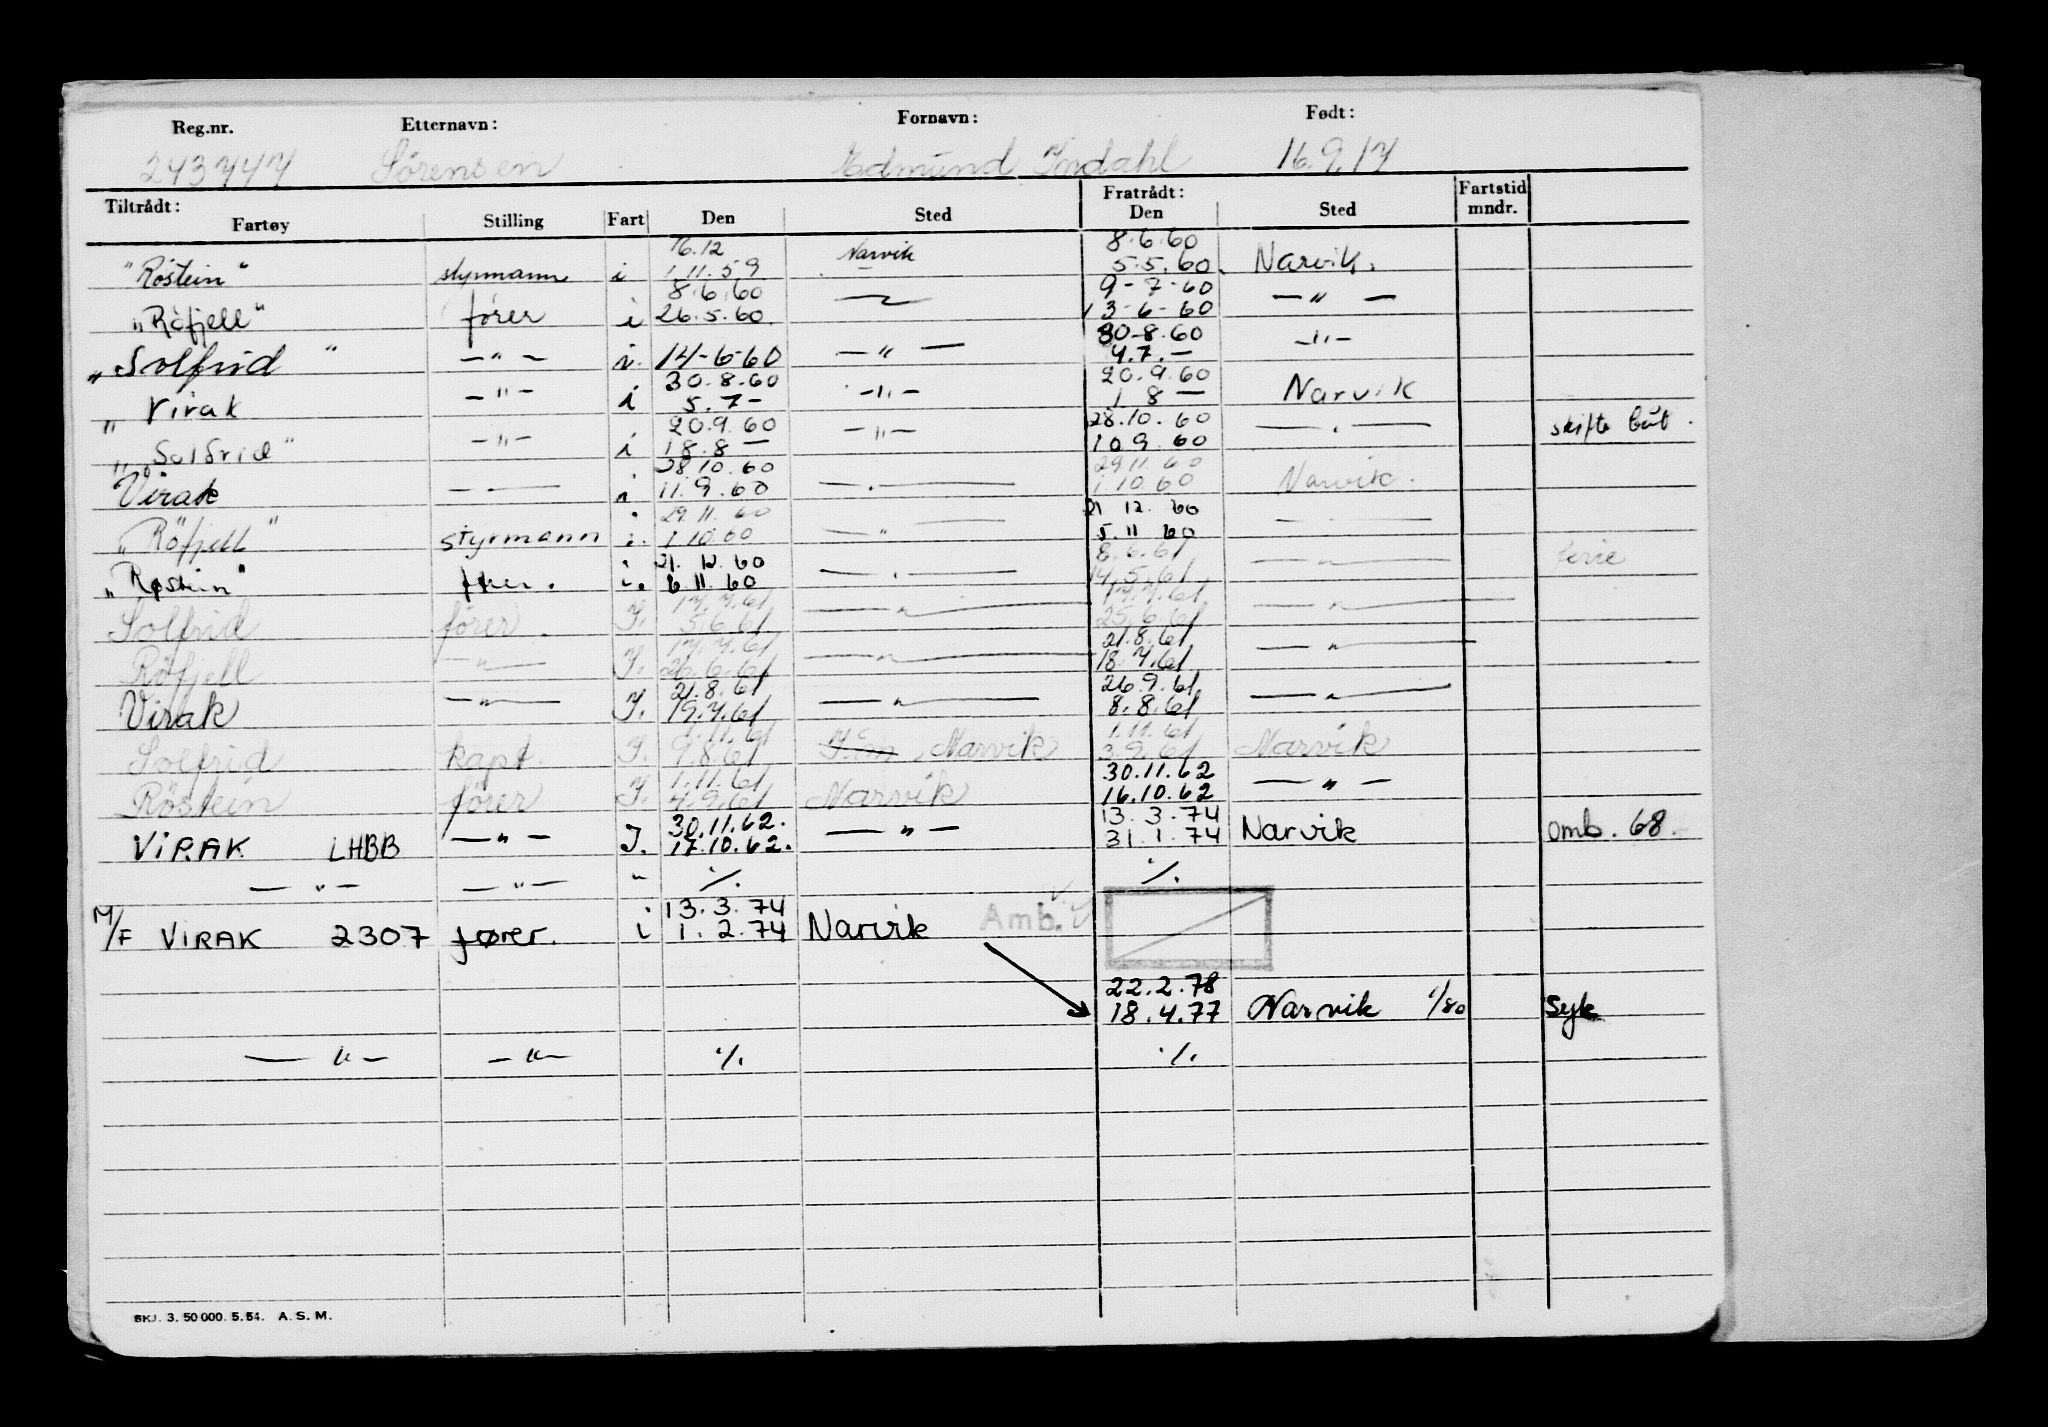 Reg.nr. Etternavn: Fornavn: Født:
243747 Sörensen Edmund Indahl 16.9.17
Tiltrådt: Fratrådt: Fartstid
Fartøy Stilling Fart Den Sted Den Sted mndr.
16.12 Narvik 8.6.60
"Röstein" styrmann i 1.11.59 5.5.60. Narvik.
8.6.60 9-7-60
"Röfjell" fører i 26.5.60 13-6-60 — " —
30-8.60
„Solfrid" — " — i. 14-6-60 — " — 4.7.—
30.8.60 20.9.60
„Virak — " — i 5.7- — " — 1 8 — Narvik
20.9.60 28.10.60
„Solfrid" — " — i 18.8 — — " — 10.9.60 — " — skifte båt.
28.10.60 29.11.60
Virak — " — i 11.9.60 — " — 1.10.60 Narvik.
29.11.60 21.12.60
"Röfjell" styrmann i. 1.10.60 — " — 5.11.60 — " —
21.12.60 8.6.61
„Røstein" fører. i. 6.11.60 — " — 14.5.61 — " — ferie
17.7.61 17.7.61
Solfrid fører. I. 5.6.61 — " — 25.6.61 — " —
17.7.61 21.8.61
Röfjell — " — I. 26.6.61 — " — 18.7.61 — " —
21.8.61 26.9.61
Virak — " — I. 19.7.61 — " — 8.8.61 — " —
1.11.61 1.11.61
Solfrid kapt. I. 9.8.61 Narvik 3.9.61 Narvik
1.11.61 30.11.62
Röstein fører I. 4.9.61 Narvik 16.10.62 — " —
30.11.62. 13.3.74
VIRAK LHBB — " — I. 17.10.62. — " — 31.1.74 Narvik omb. 68.
— " — — " — " ./. ./.
13.3.74 Amb.
M/F VIRAK 2307 fører. i 1.2.74 Narvik
22.2.78
18.4.77 Narvik 1/80 Syk
— " — — " — ./. ./.
SKJ. 3. 50 000. 5. 54. A. S. M.